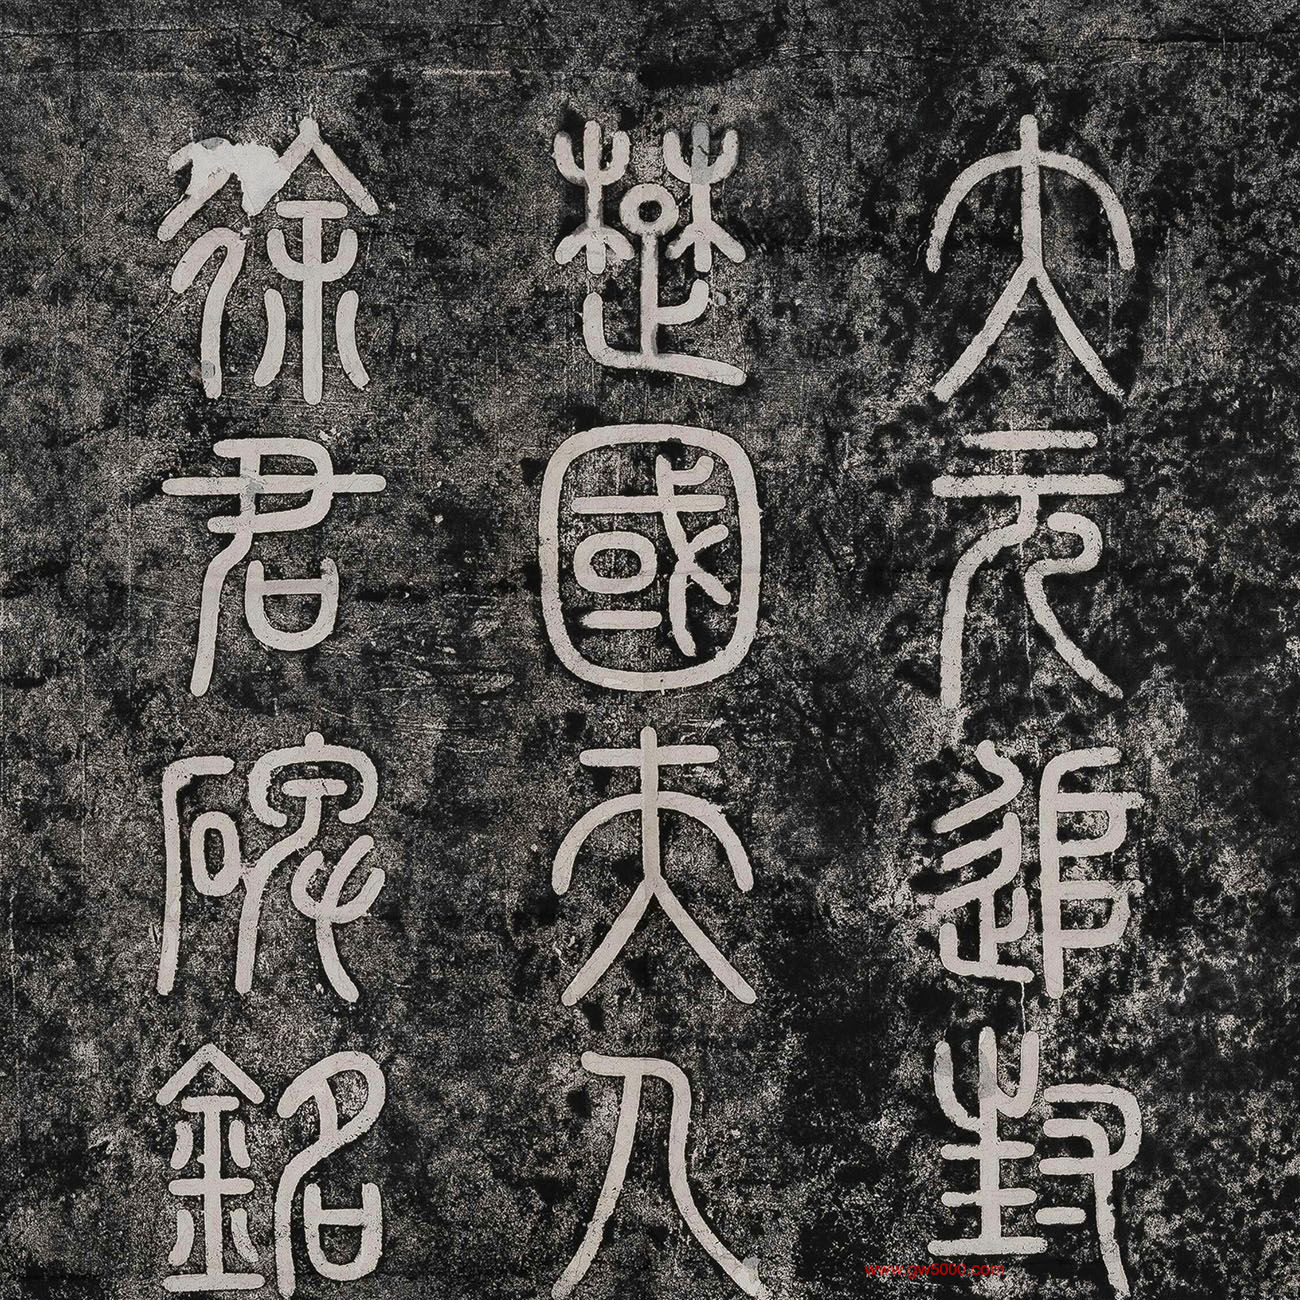 大元追封
楚國夫人
徐君碑銘
www.gw5000.com